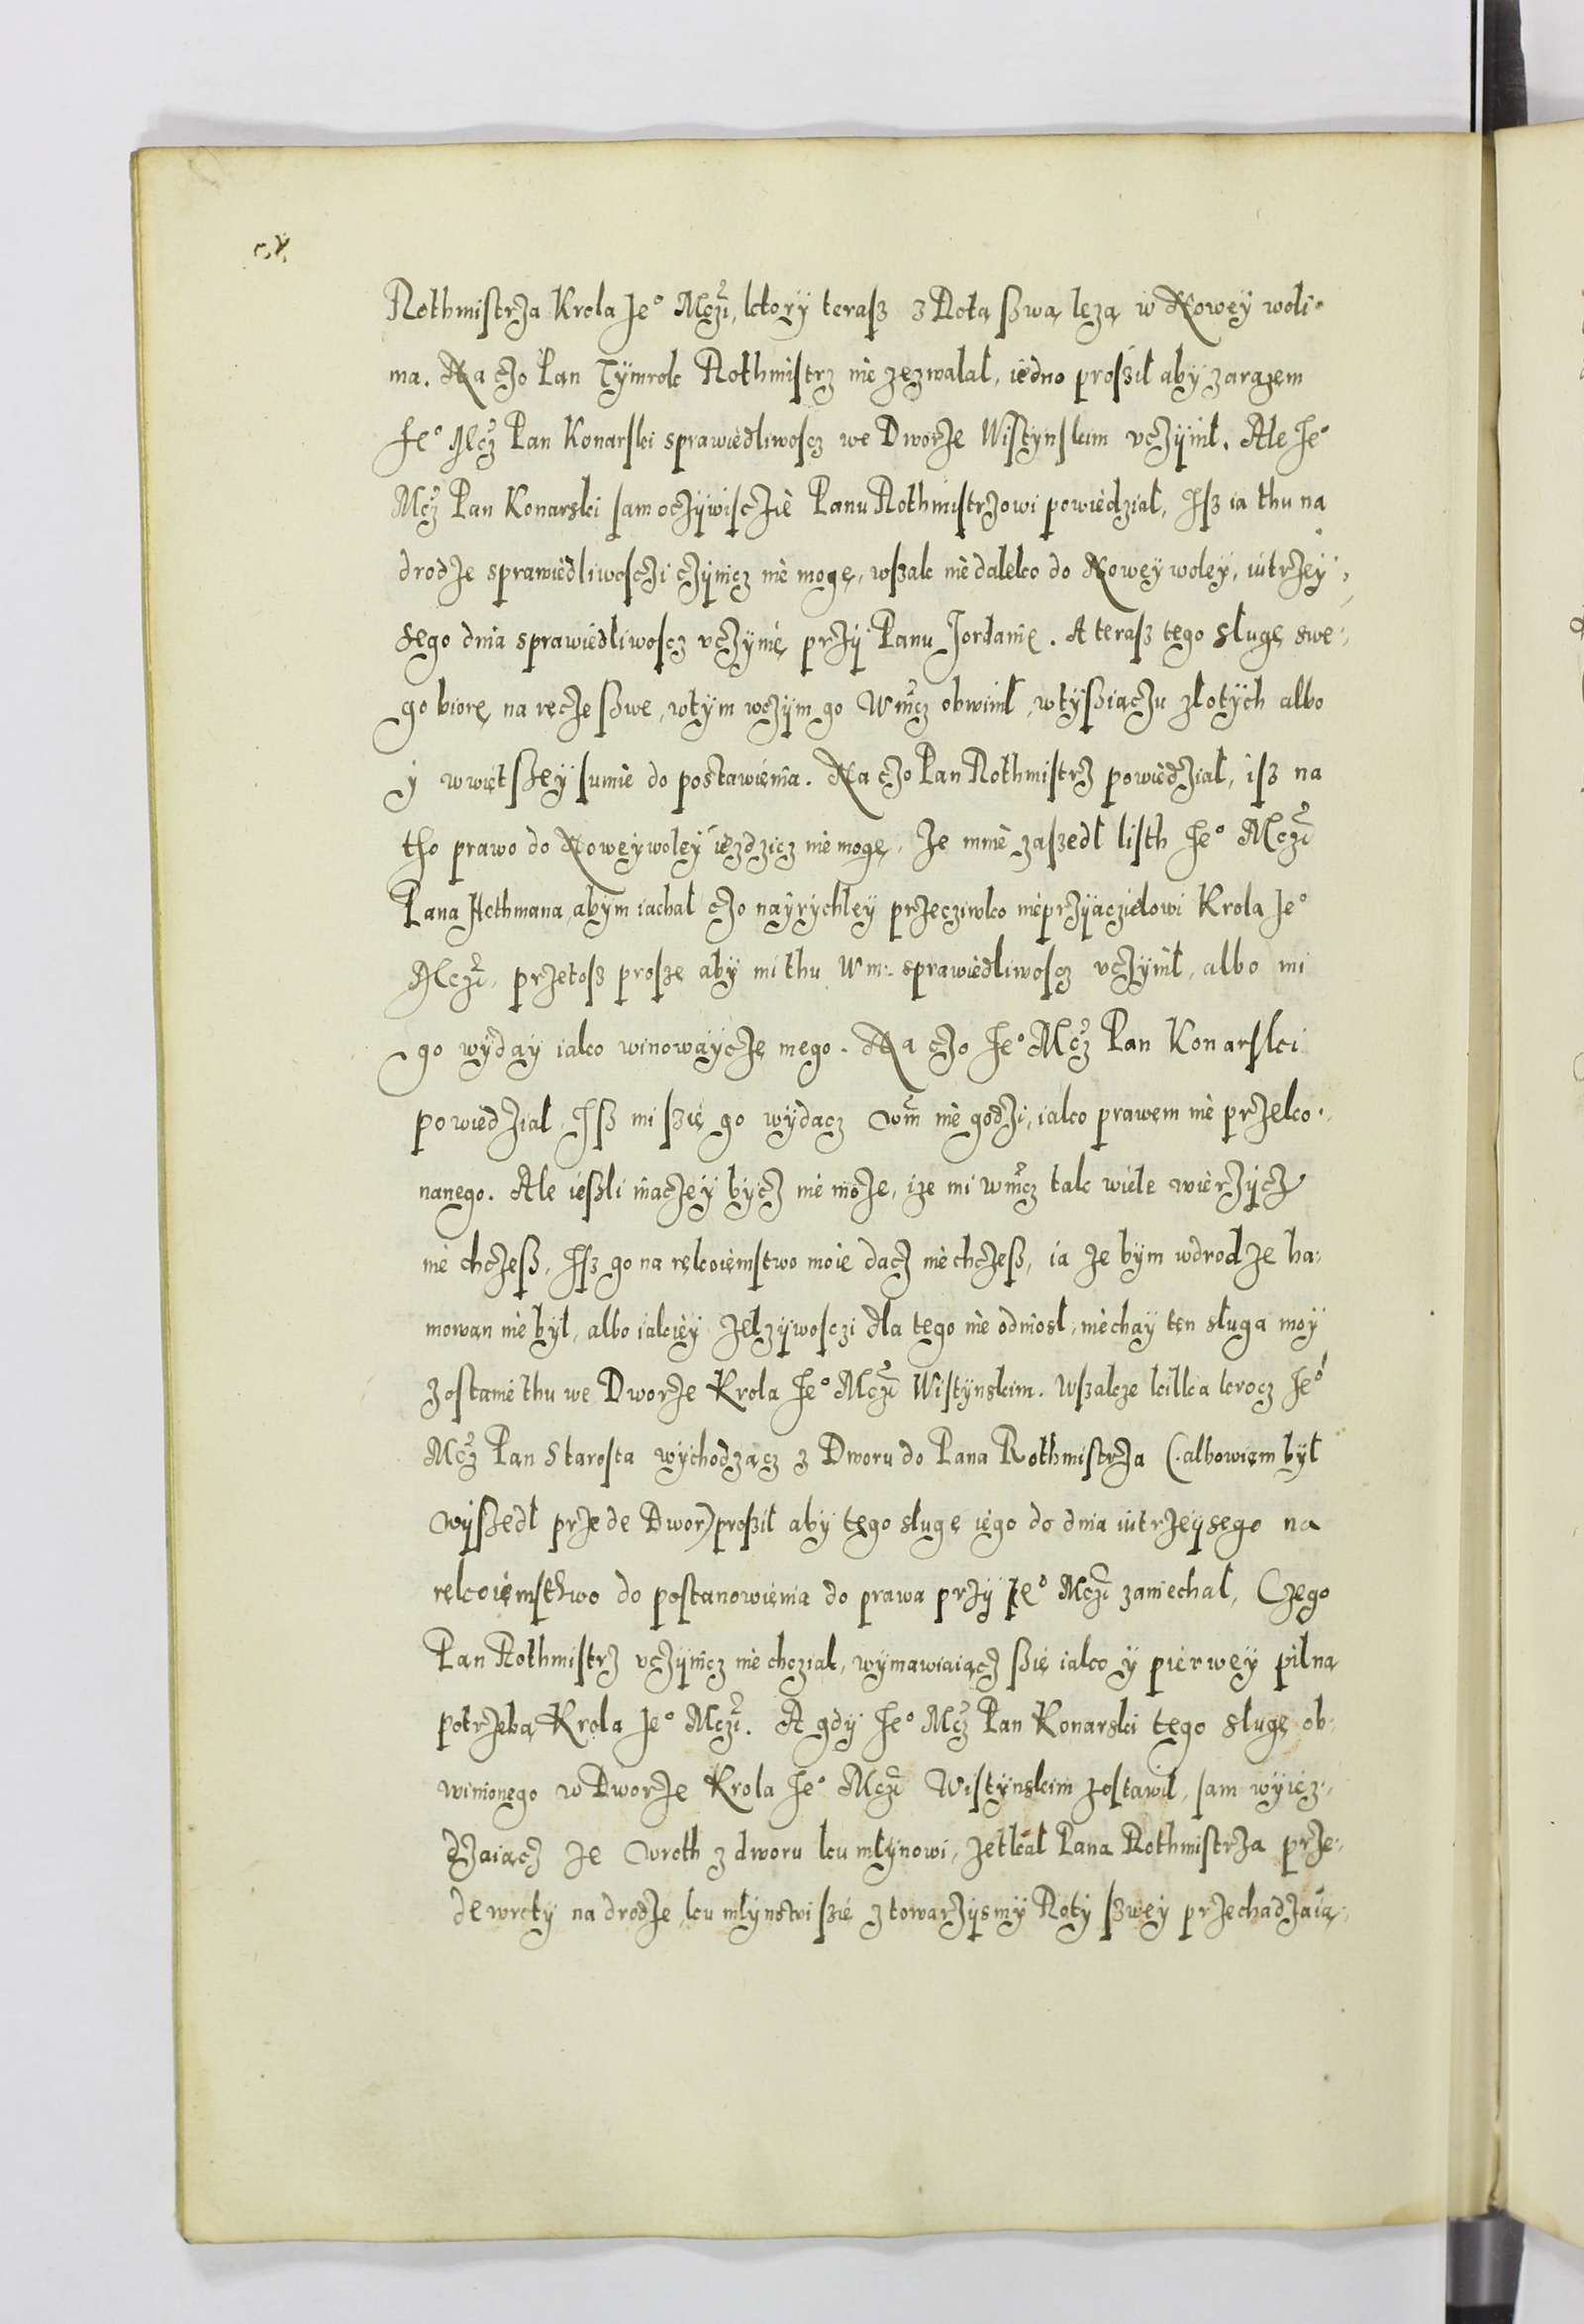 Rothmistrza Krola Je° Mczi, ktory teraſz z Rotą ſzwą leżą w Nowey woli
ma. Na czo Pan Tymrok Rothmistrz nie zezwalał, iedno proſził aby zarazem
Je° Mcz Pan Konarſki sprawiedliwoſcz we Dworze Wistynſkim vczynił. Ale Je°
Mcz Pan Konarski ſam oczÿwiſczie Panu Rothmistrzowi powiedział, Iſz ia thu na
drodze sprawiedliwoſczi czÿnicz nie mogę, wſzak niedaleko do Nowey woley, iutrzeÿ,
sego dnia sprawiedliwoſcz vczynię przÿ Panu Jordanie. A teraſz tego sługę swe,
go biorę na ręcze ſzwe, wtym wczÿm go Wmcz obwinił, wtyſziączu złotÿch albo
ÿ wwiętſzeÿ ſumie do postawienia. Na czo Pan Rothmistrz powiedział, iſz na
tho prawo do Noweÿ woleÿ iezdzicz nie mogę, Ze mnie zaſzedł liſth Je° Mczi
Pana Hethmana, abÿm iachał czo naÿrÿchleÿ przecziwko nieprzÿaczielowi Krola Je°
Mczi, przetoſz proſzę abÿ mi thu Wm: sprawiedliwoſcz vczÿnił, albo mi
go wÿdaÿ iako winowaÿczę mego. Na czo Je° Mcz Pan Konarſki
powiedział, Iſz mi ſzię go wÿdacz Wm nie godzi, iako prawem nie przeko,
nanego. Ale ieſzli inaczeÿ bÿcz nie może, iże mi wmcz tak wiele wierzÿcz
nie chczeſz, Iſz go na rękoiemstwo moie dacz nie chczeſz, ia że bÿm wdrodze ha,
mowan nie bÿł, albo iakieÿ żelzÿwoſczi dla tego nie odnioſł, niechaÿ ten sługa moÿ
zostanie thu we Dworze Krola Je° Mczi Wistÿnskim. Wſzakże kilka krocz Je°
Mcz Pan Starosta wÿchodzącz z Dworu do Pana Rothmistrza (albowiem bÿł
wÿſzedł przede Dwor) proſził abÿ tego sługę iego do dnia iutrzeÿsego na
rękoiemsthwo do postanowienia do prawa przÿ Je° Mczi zaniechał, Czego
Pan Rothmistrz vczÿnicz nie chcział, wymawiaiącz ſzię iako ÿ pierweÿ pilną
potrzebą Krola Je° Mczi. A gdÿ Je° Mcz Pan Konarski tego sługę ob,
winionego w Dworze Krola Je° Mczi Wistÿnskim zostawił, ſam wÿiez,
dzaiącz ze Wroth z dworu ku młÿnowi, zetkał Pana Rothmistrza prze,
de wrotÿ na drodze, ku młÿnowi ſzię z towarzÿsmÿ Rotÿ ſzweÿ przechadzaią,